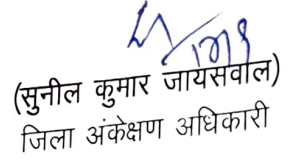 (सुनील कुमार जायसवाल)
जिला अंकेक्षण अधिकारी